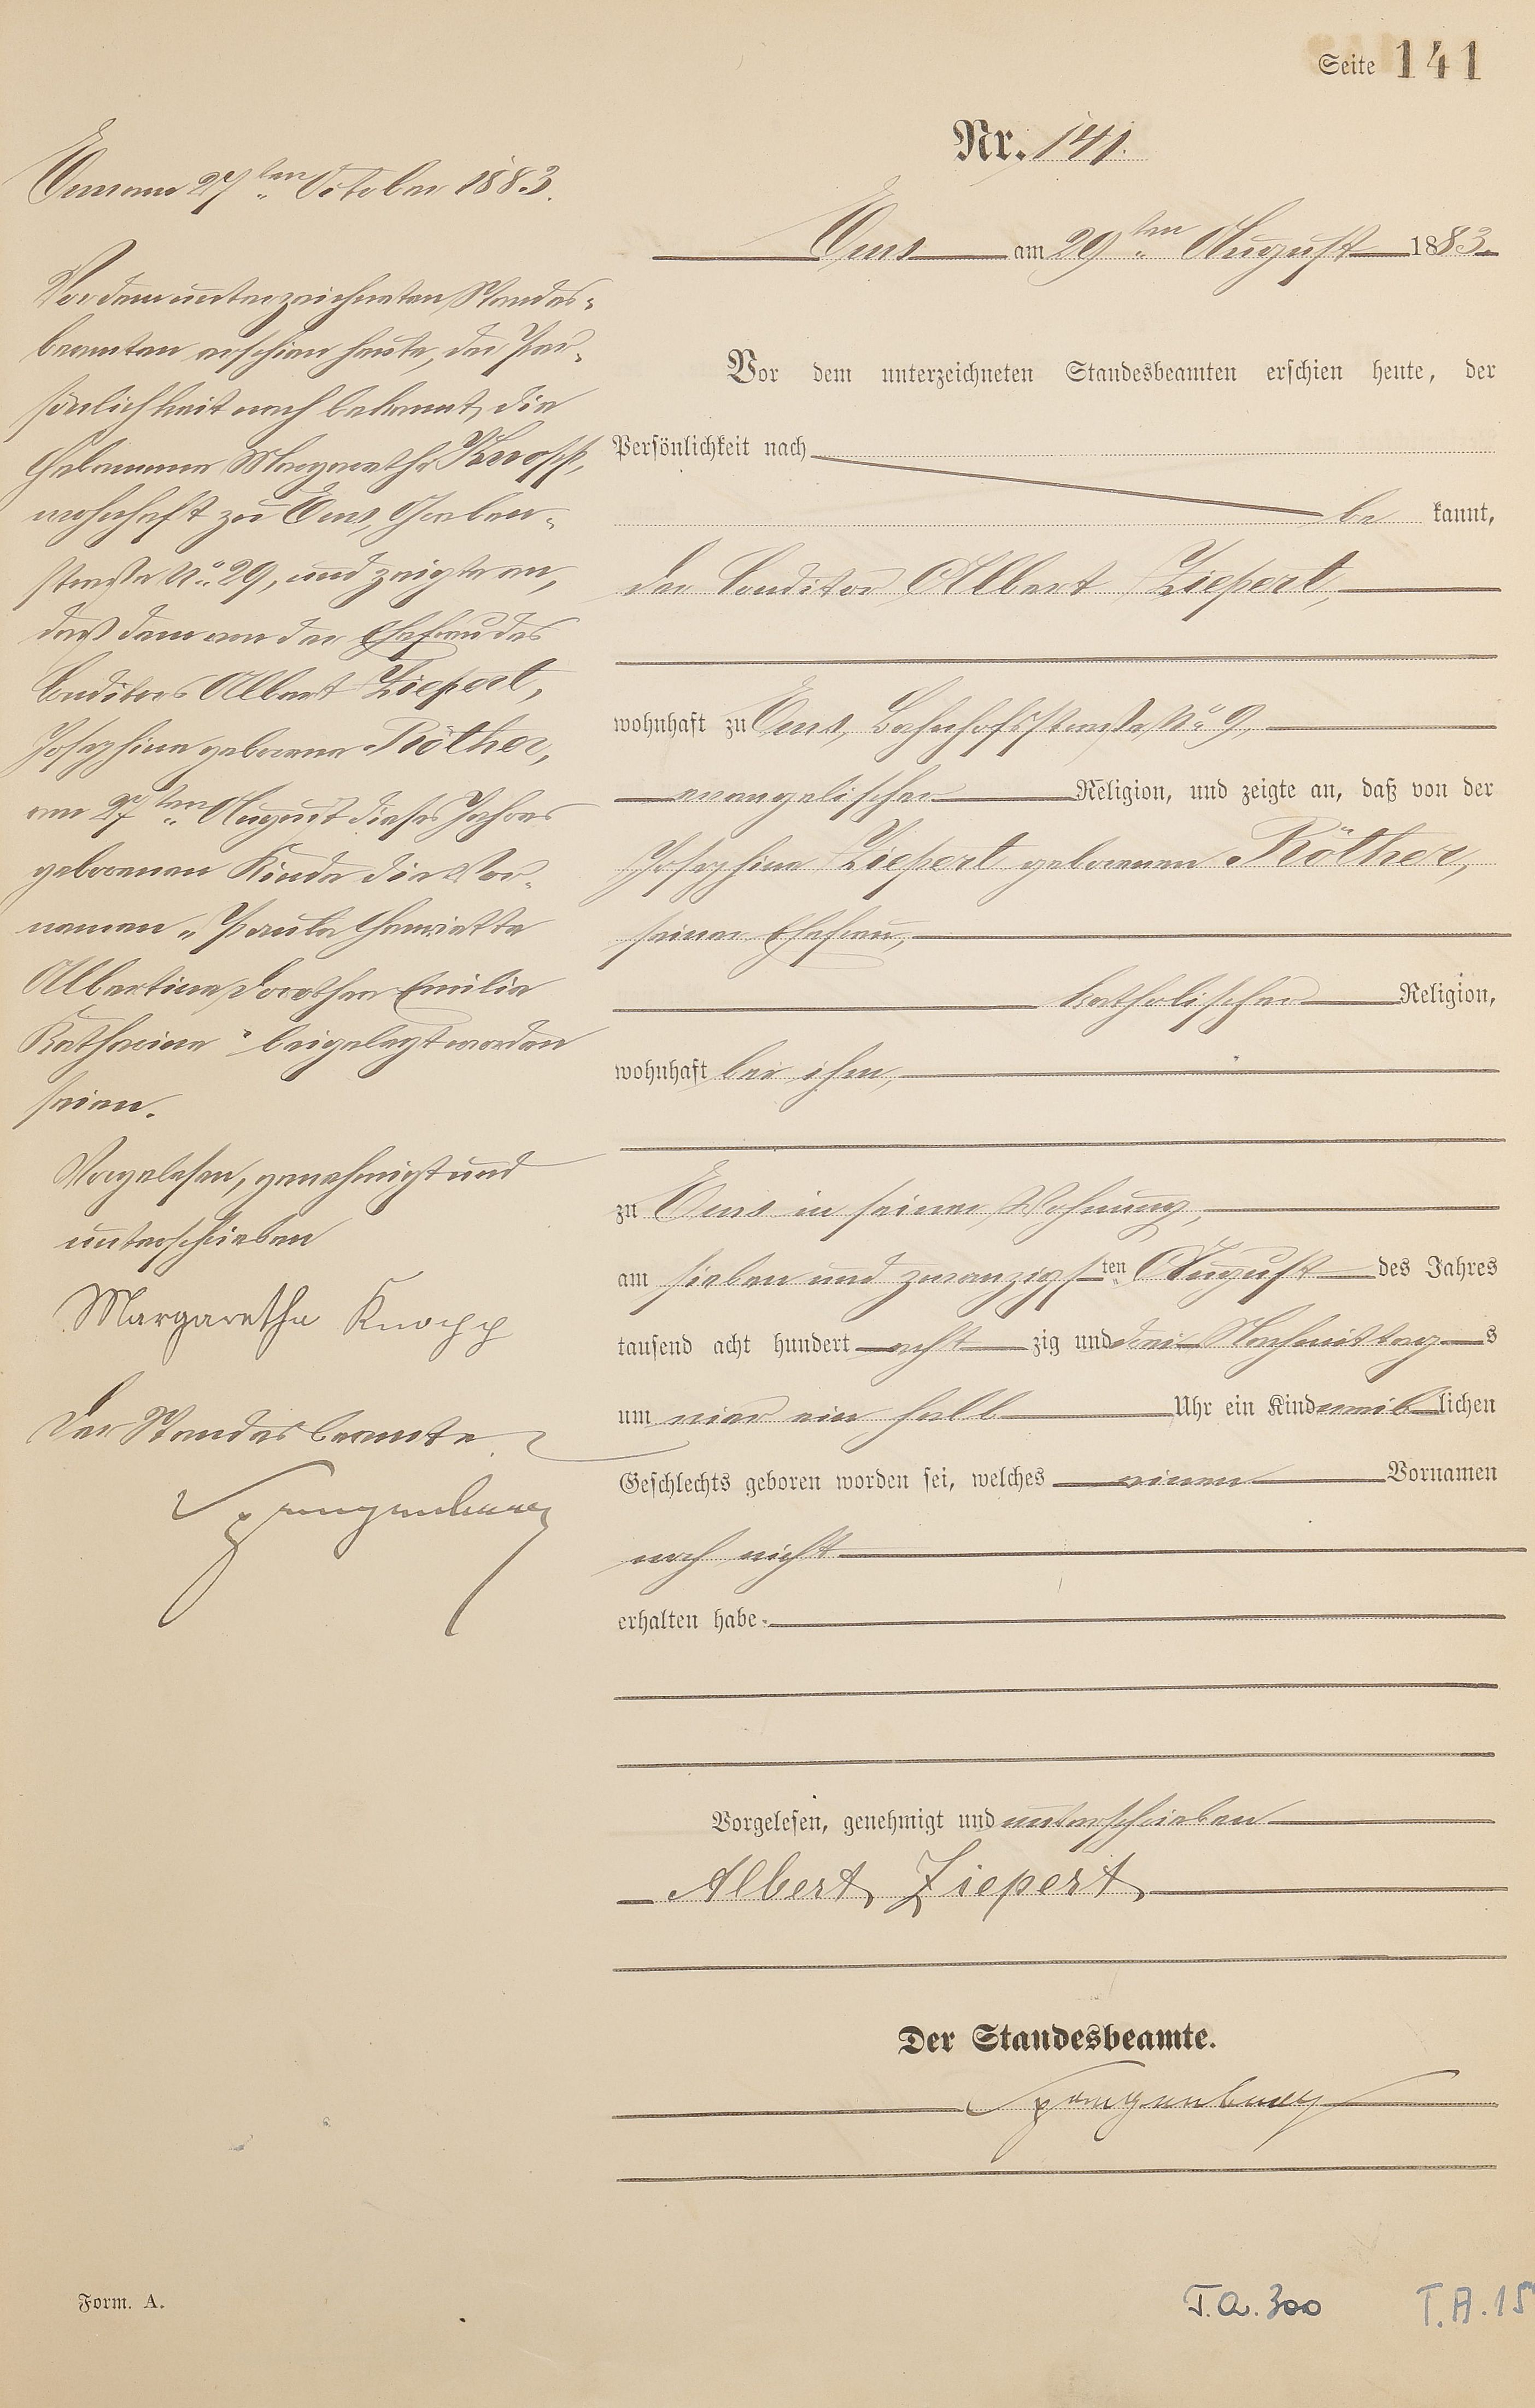 Seite 141
Nr. 141.
Ems am 29ten August 1883.
Vor dem unterzeichneten Standesbeamten erschien heute, der
Persönlichkeit nach
be kannt,
der Conditor Albert Ziepert,
wohnhaft zu Ems, Bahnhofsstraße No 9,
evangelischer Religion, und zeigte an, daß von der
Josephine Ziepert geborenen Röther,
seiner Ehefrau,
katholischer Religion,
wohnhaft bei ihm,
zu Ems in seiner Wohnung,
am sieben und zwanzigsten August des Jahres
tausend acht hundert acht zig und drei Nachmittags
um vier ein halb Uhr ein Kind weiblichen
Geschlechts geboren worden sei, welches einen Vornamen
noch nicht
erhalten habe.
Vorgelesen, genehmigt und unterschrieben
Albert Ziepert
Der Standesbeamte.
Spangenberg
Ems am 27ten October 1883.
Vor dem unterzeichneten Standes-
beamten erschien heute, der Per-
sönlichkeit nach bekannt, die
Hebamme Margaretha Knopp,
wohnhaft zu Ems, Graben-
straße No 29, und zeigte an,
daß dem von der Ehefrau des
Conditors Albert Ziepert,
Josephine geborene Röther,
am 27ten August dieses Jahres
geborenen Kinde die Vor-
namen „Paula Henriette
Albertine Dorothea Emilie
Katharina" beigelegt worden
seien.
Vorgelesen, genehmigt und
unterschrieben
Margaretha Knopp
Der Standesbeamte
Spangenberg
Form. A.
T.A. 300
T.A. 15